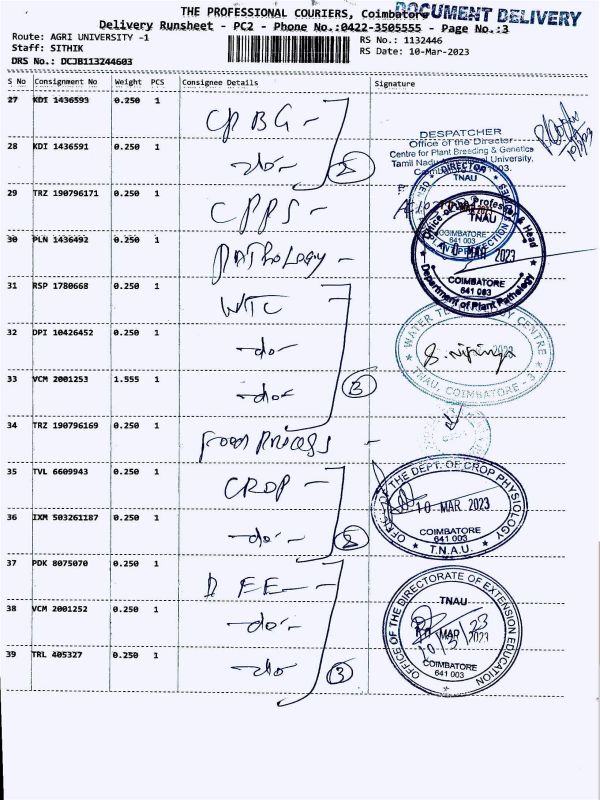 THE PROFESSIONAL COURIERS, Coimbatore
DOCUMENT DELIVERY
Delivery Runsheet - PC2 - Phone No.:0422-3505555 - Page No.:3
Route: AGRI UNIVERSITY -1
RS No.: 1132446
Staff: SITHIK
RS Date: 10-Mar-2023
DRS No.: DCJB113244603
S No Consignment No Weight PCS Consignee Details Signature
27 KDI 1436593 0.250 1 CPBG -
28 KDI 1436591 0.250 1 -do- 2
DESPATCHER
Office of the Director
Centre for Plant Breeding & Genetics
Tamil Nadu Agricultural University,
Coimbatore - 641 003.
29 TRZ 190796171 0.250 1 CPPS -
DIRECTOR
TNAU
COIMBATORE
641 003
30 PLN 1436492 0.250 1 PATHOLOGY -
Office of the Professor & Head
TNAU
MAR 2023
COIMBATORE
641 003
Department of Plant Pathology
31 RSP 1780668 0.250 1 WTC
32 DPI 10426452 0.250 1 -do-
33 VCM 2001253 1.555 1 -do- 3
WATER TECHNOLOGY CENTRE
TNAU, COIMBATORE - 3
34 TRZ 190796169 0.250 1 FOOD PROCESS -
35 TVL 6609943 0.250 1 CROP -
36 IXM 503261187 0.250 1 -do- 2
OFFICE OF THE DEPT. OF CROP PHYSIOLOGY
10 MAR 2023
COIMBATORE
641 003
T.N.A.U.
37 PDK 8075070 0.250 1 DEE -
38 VCM 2001252 0.250 1 -do-
39 TRL 405327 0.250 1 -do- 3
OFFICE OF THE DIRECTORATE OF EXTENSION EDUCATION
TNAU
10 MAR 2023
10/3/23
COIMBATORE
641 003